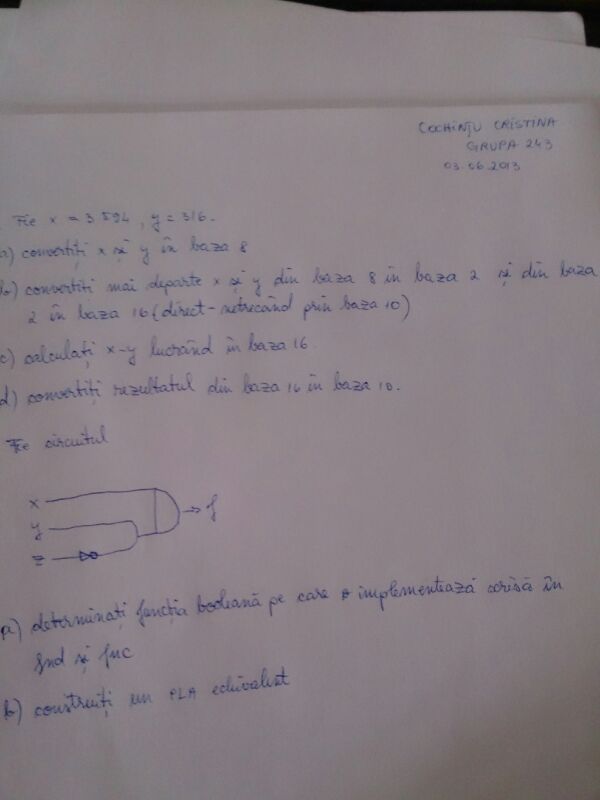 COCHINȚU CRISTINA
GRUPA 243
03.06.2013
Fie x = 3594, y = 316.
a) convertiți x și y în baza 8
b) convertiți mai departe x și y din baza 8 în baza 2 și din baza
2 în baza 16 (direct - netrecând prin baza 10)
c) calculați x-y lucrând în baza 16.
d) convertiți rezultatul din baza 16 în baza 10.
Fie circuitul
x
y
z
f
a) determinați funcția booleană pe care o implementează scrisă în
fnd și fnc
b) construiți un PLA echivalent